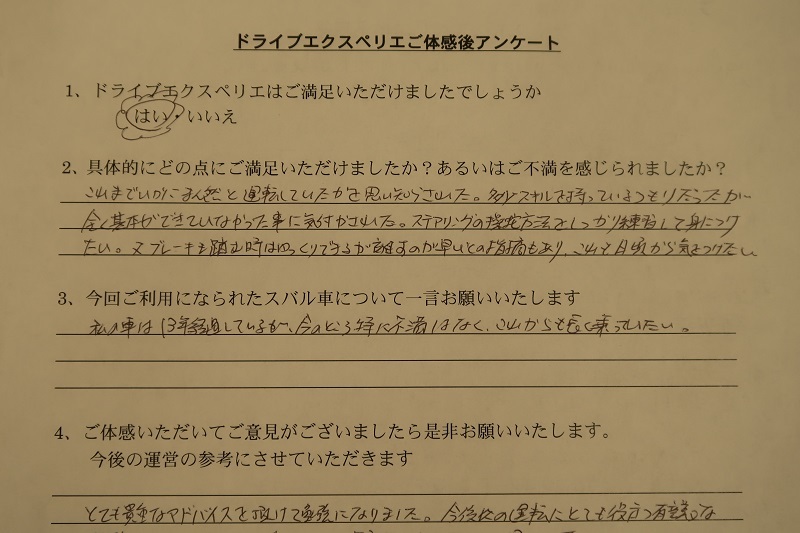 ドライブエクスペリエご体感後アンケート
1、ドライブエクスペリエはご満足いただけましたでしょうか
はい・いいえ
2、具体的にどの点にご満足いただけましたか？あるいはご不満を感じられましたか？
これまでいかにまん然と運転していたかを思い知らされた。多少スキルを持っているつもりだったが
全く基本ができていなかった事に気付かされた。ステアリングの操舵方法をしっかり練習して身につけ
たい。又ブレーキも踏む時はゆっくりできるが離すのが早いとの指摘もあり、これも日頃から気をつけたい
3、今回ご利用になられたスバル車について一言お願いいたします
私の車は13年経過しているが、今のところ特に不満はなく、これからも長く乗っていたい。
4、ご体感いただいてご意見がございましたら是非お願いいたします。
今後の運営の参考にさせていただきます
とても貴重なアドバイスを頂けて勉強になりました。今後の運転にとても役立つ有意義な